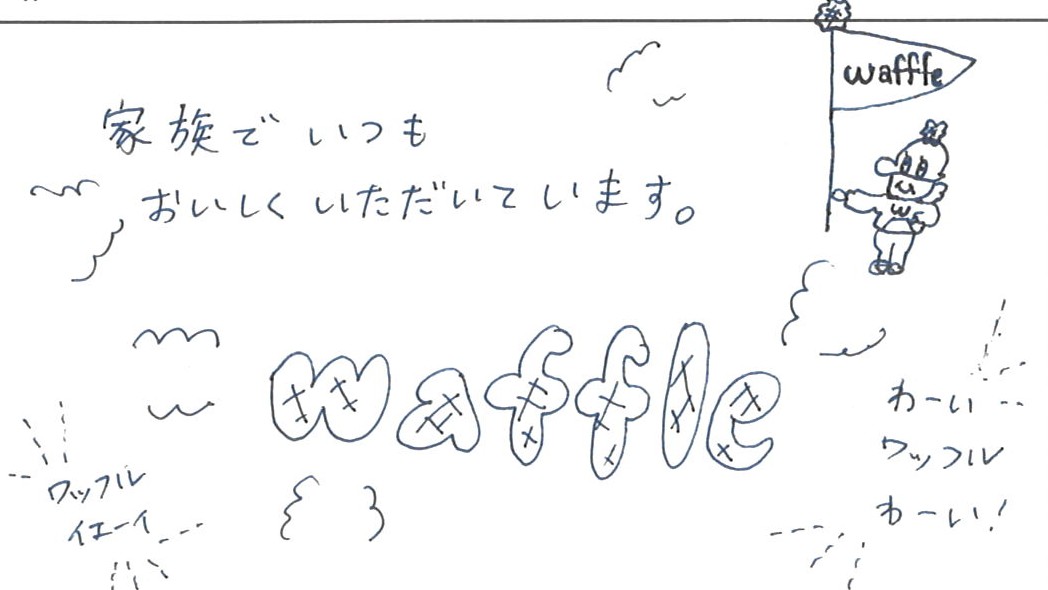 wafffe
家族でいつも
おいしくいただいています。
waffle
わーい
ワッフル
わーい!
ワッフル
イエーイ
w